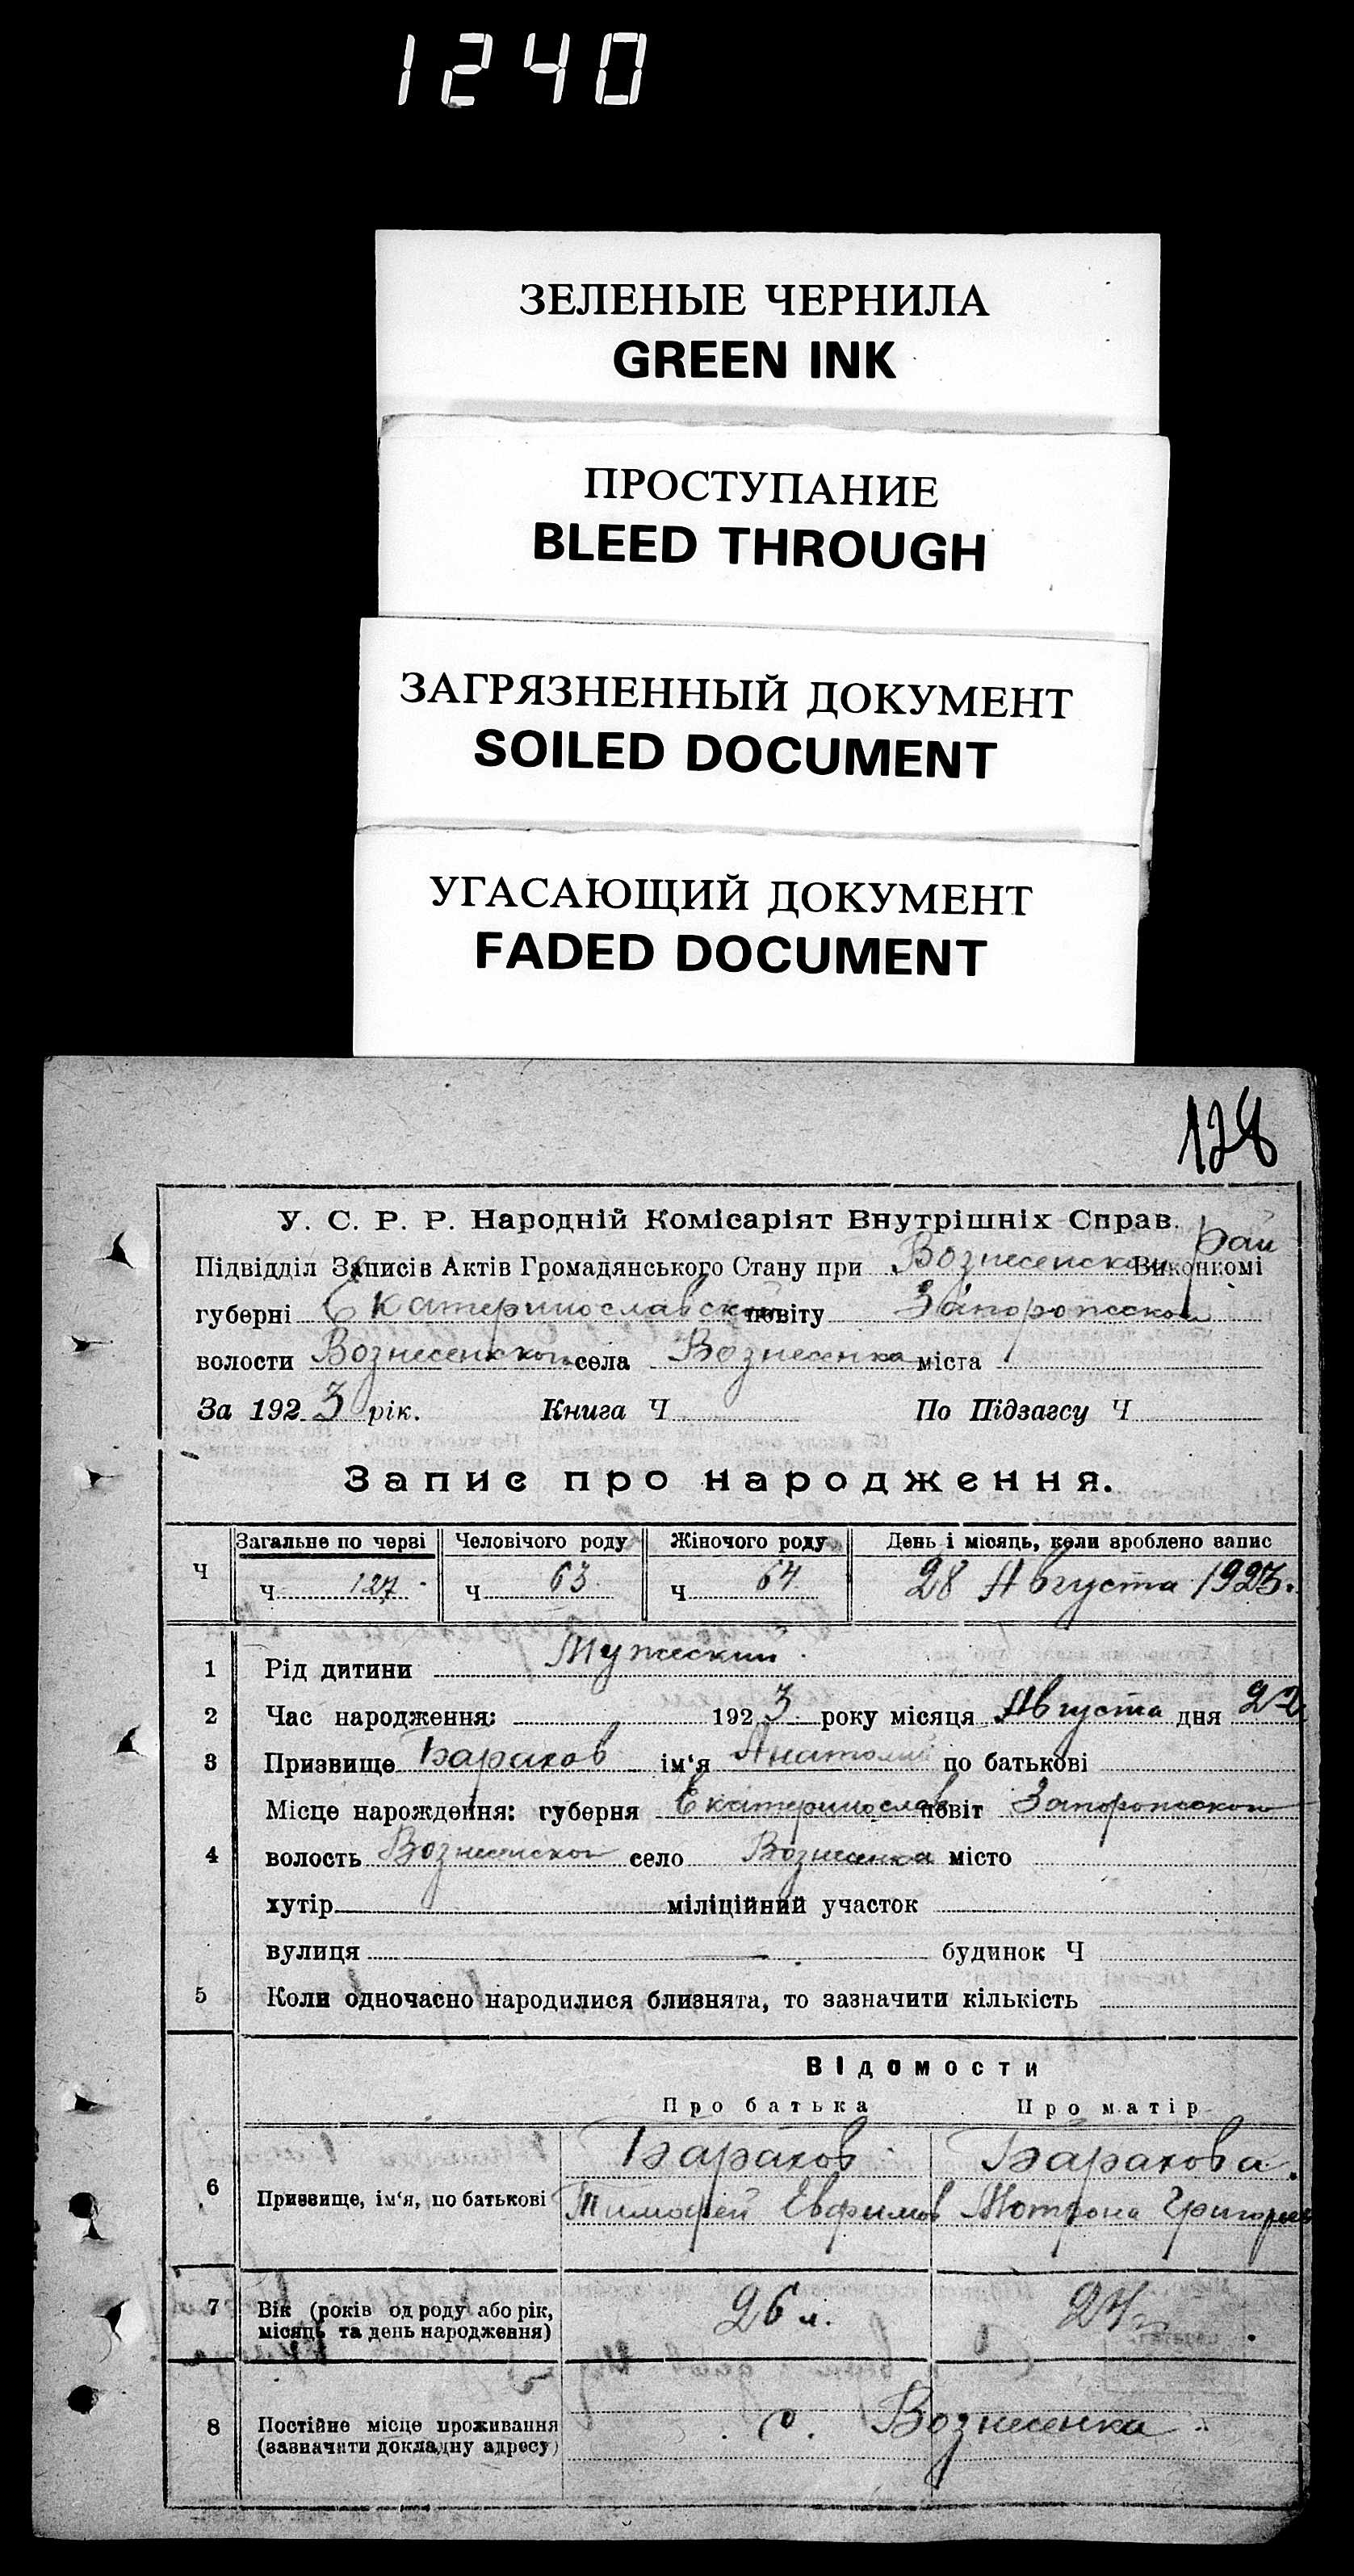 1240
ЗЕЛЕНЫЕ ЧЕРНИЛА
GREEN INK
ПРОСТУПАНИЕ
BLEED THROUGH
ЗАГРЯЗНЕННЫЙ ДОКУМЕНТ
SOILED DOCUMENT
УГАСАЮЩИЙ ДОКУМЕНТ
FADED DOCUMENT
128
У. С. Р. Р. Народній Комісаріят Внутрішніх Справ.
Підвідділ Записів Актів Громадянського Стану при Вознесенском Рай Виконкомі
губерні Екатеринославской повіту Запорожской
волости Вознесенской села Вознесенка міста
За 1923 рік. Книга Ч По Підзагсу Ч
Запис про народження.
Ч Загальне по черзі Человічого роду Жіночого роду День і місяць, коли зроблено запис
Ч 127 Ч 63 Ч 64 28 Августа 1923.
1 Рід дитини Мужеский
2 Час народження: 1923 року місяця Августа дня 22
3 Призвище Барахов ім'я Анатолий по батькові
Місце нарождення: губерня Екатеринослав повіт Запорожской
4 волость Вознесенской село Вознесенка місто
хутір міліційний участок
вулиця — будинок Ч
5 Коли одночасно народилися близнята, то зазначити кількість
Відомости
Про батька Про матір
6 Призвище, ім'я, по батькові Барахов Барахова.
Тимофей Евфимов Мотрона Григорьев
7 Вік (років од роду або рік, місяць та день народження) 26 л. 24
8 Постійне місце проживання (зазначити докладну адресу) с. Вознесенка